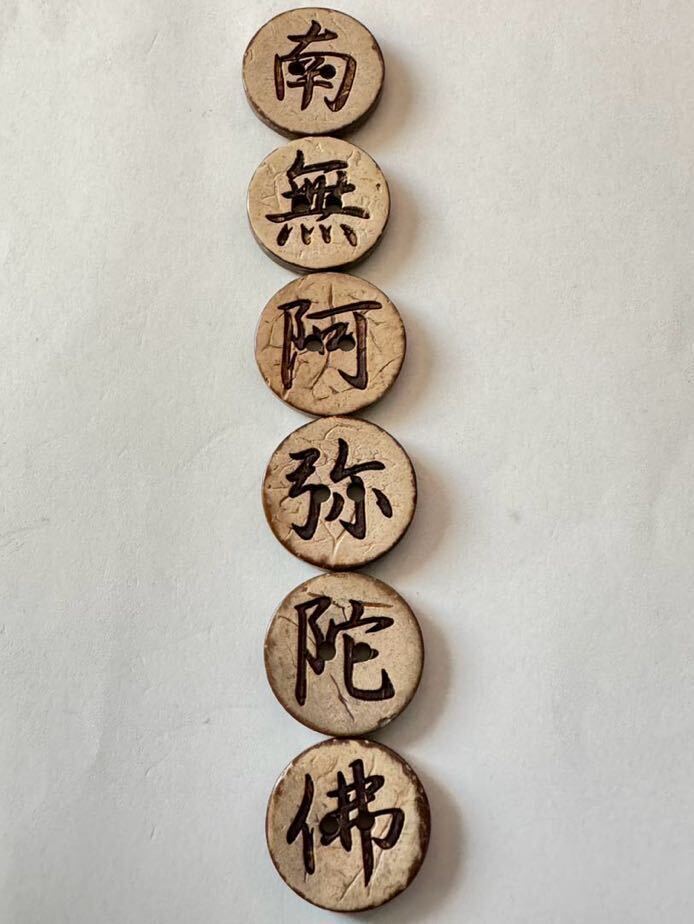 南
無
阿
弥
陀
佛